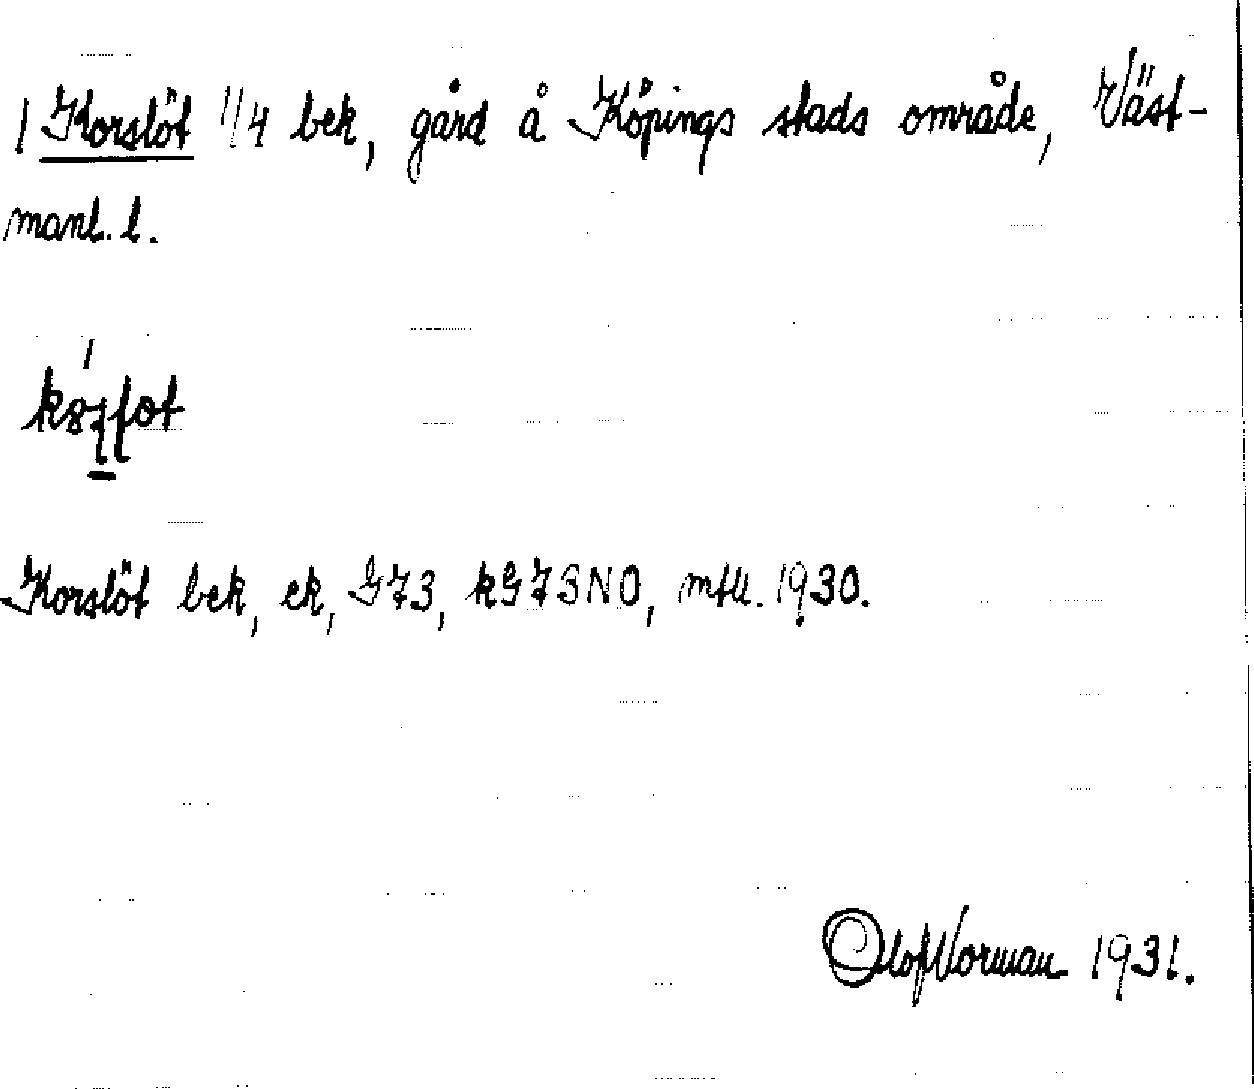 1 Korslöt 1/4 bek, gård å Köpings stads område, Väst-
manl. l.
Korslöt bek, ek, G73, kG73NO, mtll. 1930.
Olof Norman 1931.